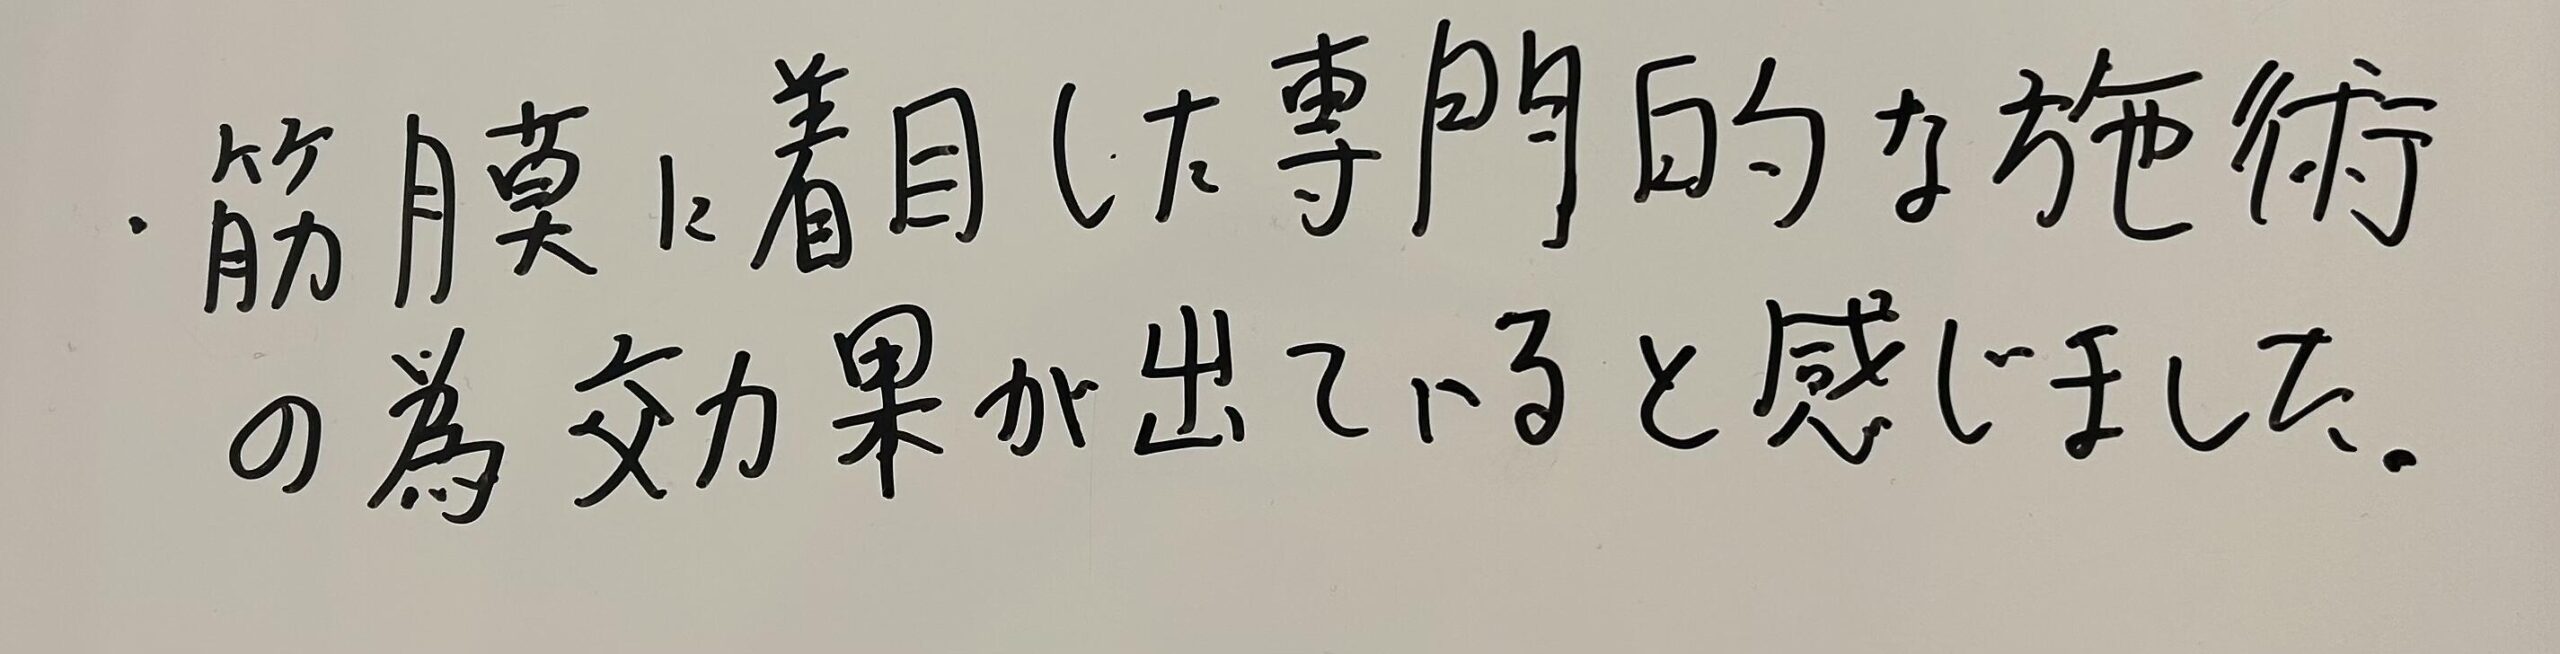 ・筋膜に着目した専門的な施術
の為効果が出ていると感じました.